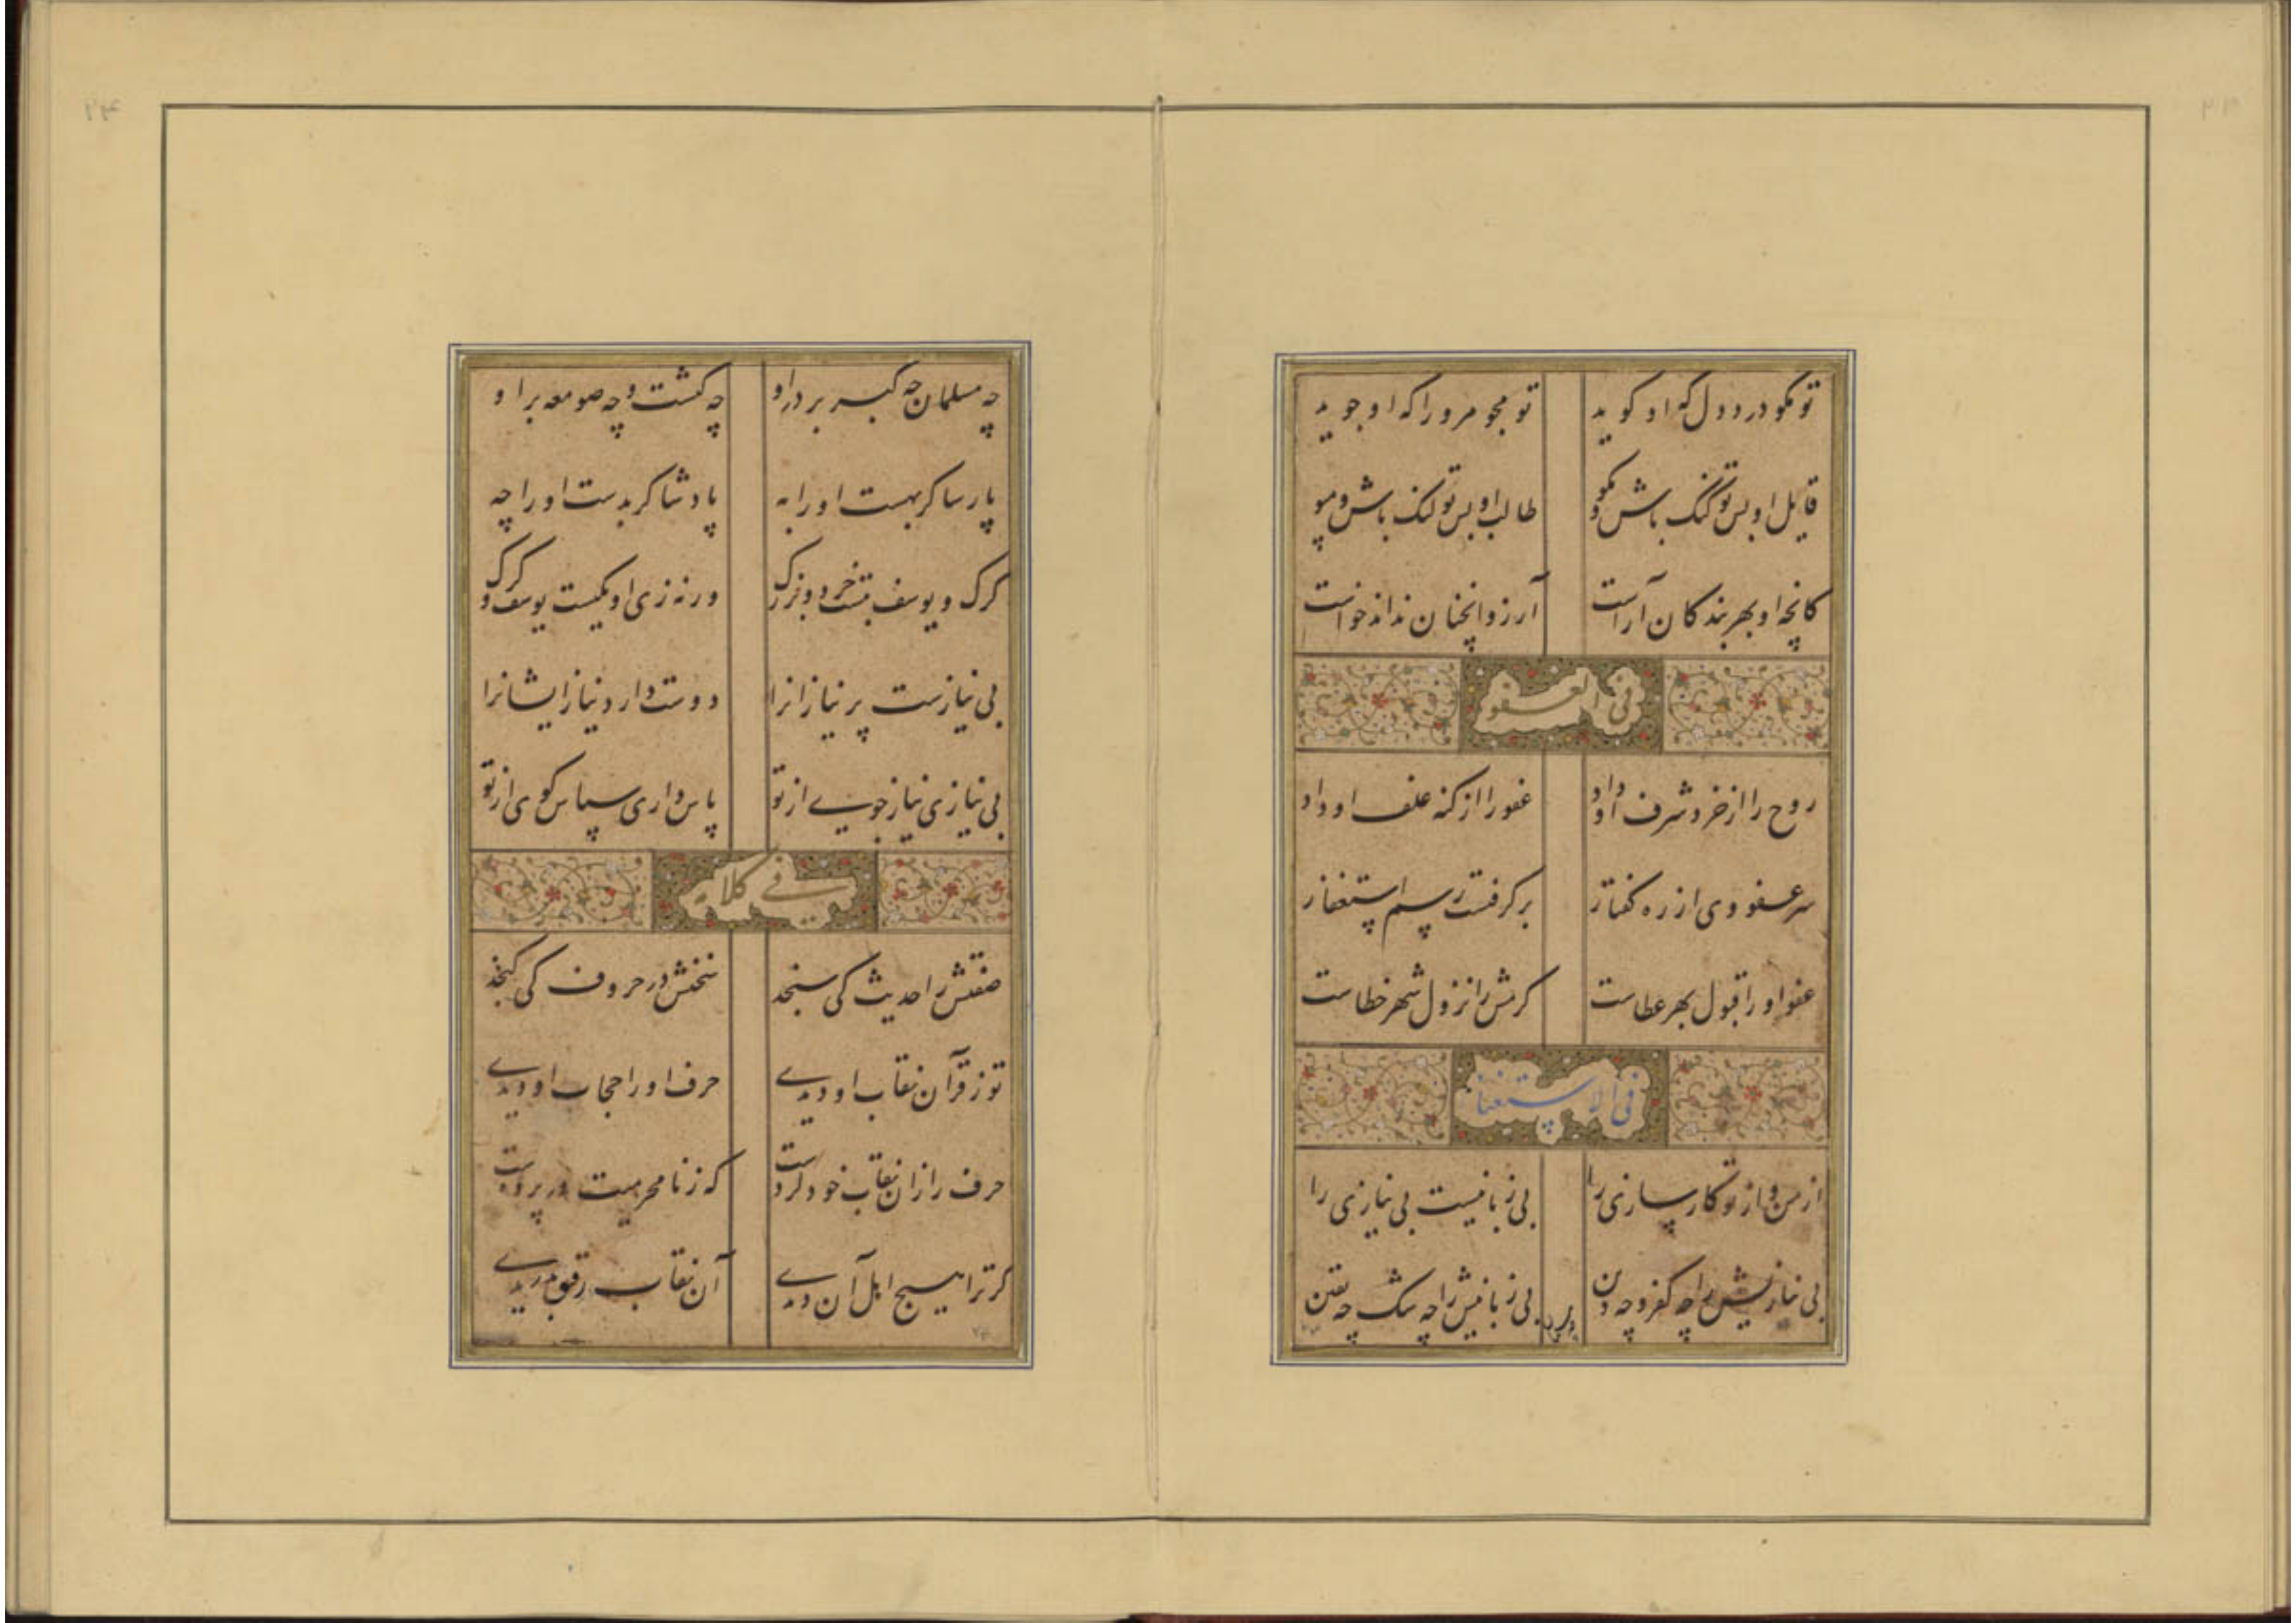 تو مکو درد دل که او کوید تو مجو مرورا که او جوید
قایل او بس تو کنک باش و مکو طالب او بس تو لنک باش و مپو
کانچه او بهر بندکان آراست آرزو آنچنان نداند خواست
فی العفو
روح را از خرد شرف او داد عفو را از کنه علف او داد
سر عفو وی از ره کفتار برکرفتست رسم استغفار
عفو او را قبول بهر عطاست کرمش را نزول بهر خطاست
فی الاستغنا
از من و از تو کارسازی را بی زبانیست بی نیازی را
بی نیازیش را چه کفر و چه دین بی زبانیش را چه شک چه یقین
چه مسلمان چه کبر بر در او چه کنشت و چه صومعه بر او
پارسا کر بهست او را به پادشا کر بدست او را چه
کرک و یوسف بتست خرد و بزرک ورنه زی او یکیست یوسف و کرک
بی نیازست پر نیازانرا دوست دارد نیاز ایشانرا
بی نیازی نیاز جویی از تو پاس داری سپاس کوی از تو
فی کلامه
صفتش را حدیث کی سنجد سخنش در حروف کی کنجد
تو ز قرآن نقاب او دیدی حرف او را حجاب او دیدی
حرف را زان نقاب خود کردست که ز نامحرمیت در پردست
کر ترا هیچ اهل آن دیدی آن نقاب رقیق بدریدی